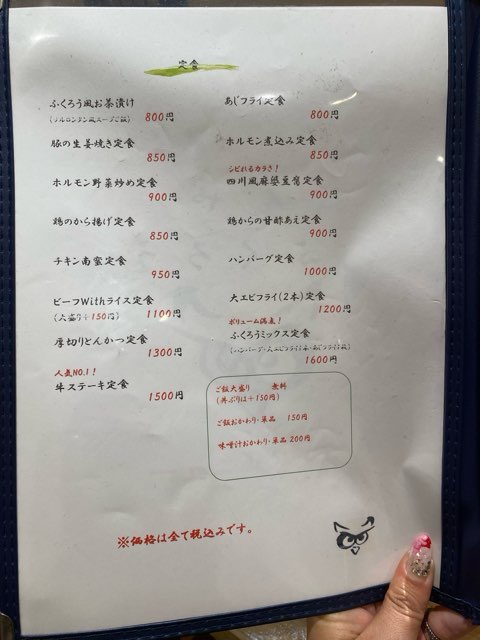 定食
ふくろう風お茶漬け
800円
豚の生姜焼き定食
850円
ホルモン野菜炒め定食
900円
鶏のから揚げ定食
850円
チキン南蛮定食
950円
ビーフWithライス定食
(大盛り+150円) 1100円
厚切りとんかつ定食
1300円
人気NO.1!
牛ステーキ定食
1500円
あじフライ定食
800円
ホルモン煮込み定食
850円
シビれるカラさ!
四川風麻婆豆腐定食
900円
鶏からの甘酢あえ定食
900円
ハンバーグ定食
1000円
大エビフライ(2本)定食
1200円
ボリューム満点!
ふくろうミックス定食
1600円
ご飯大盛り 無料
(丼ぶりは+150円)
ご飯おかわり・単品 150円
味噌汁おかわり・単品 200円
※価格は全て税込みです。